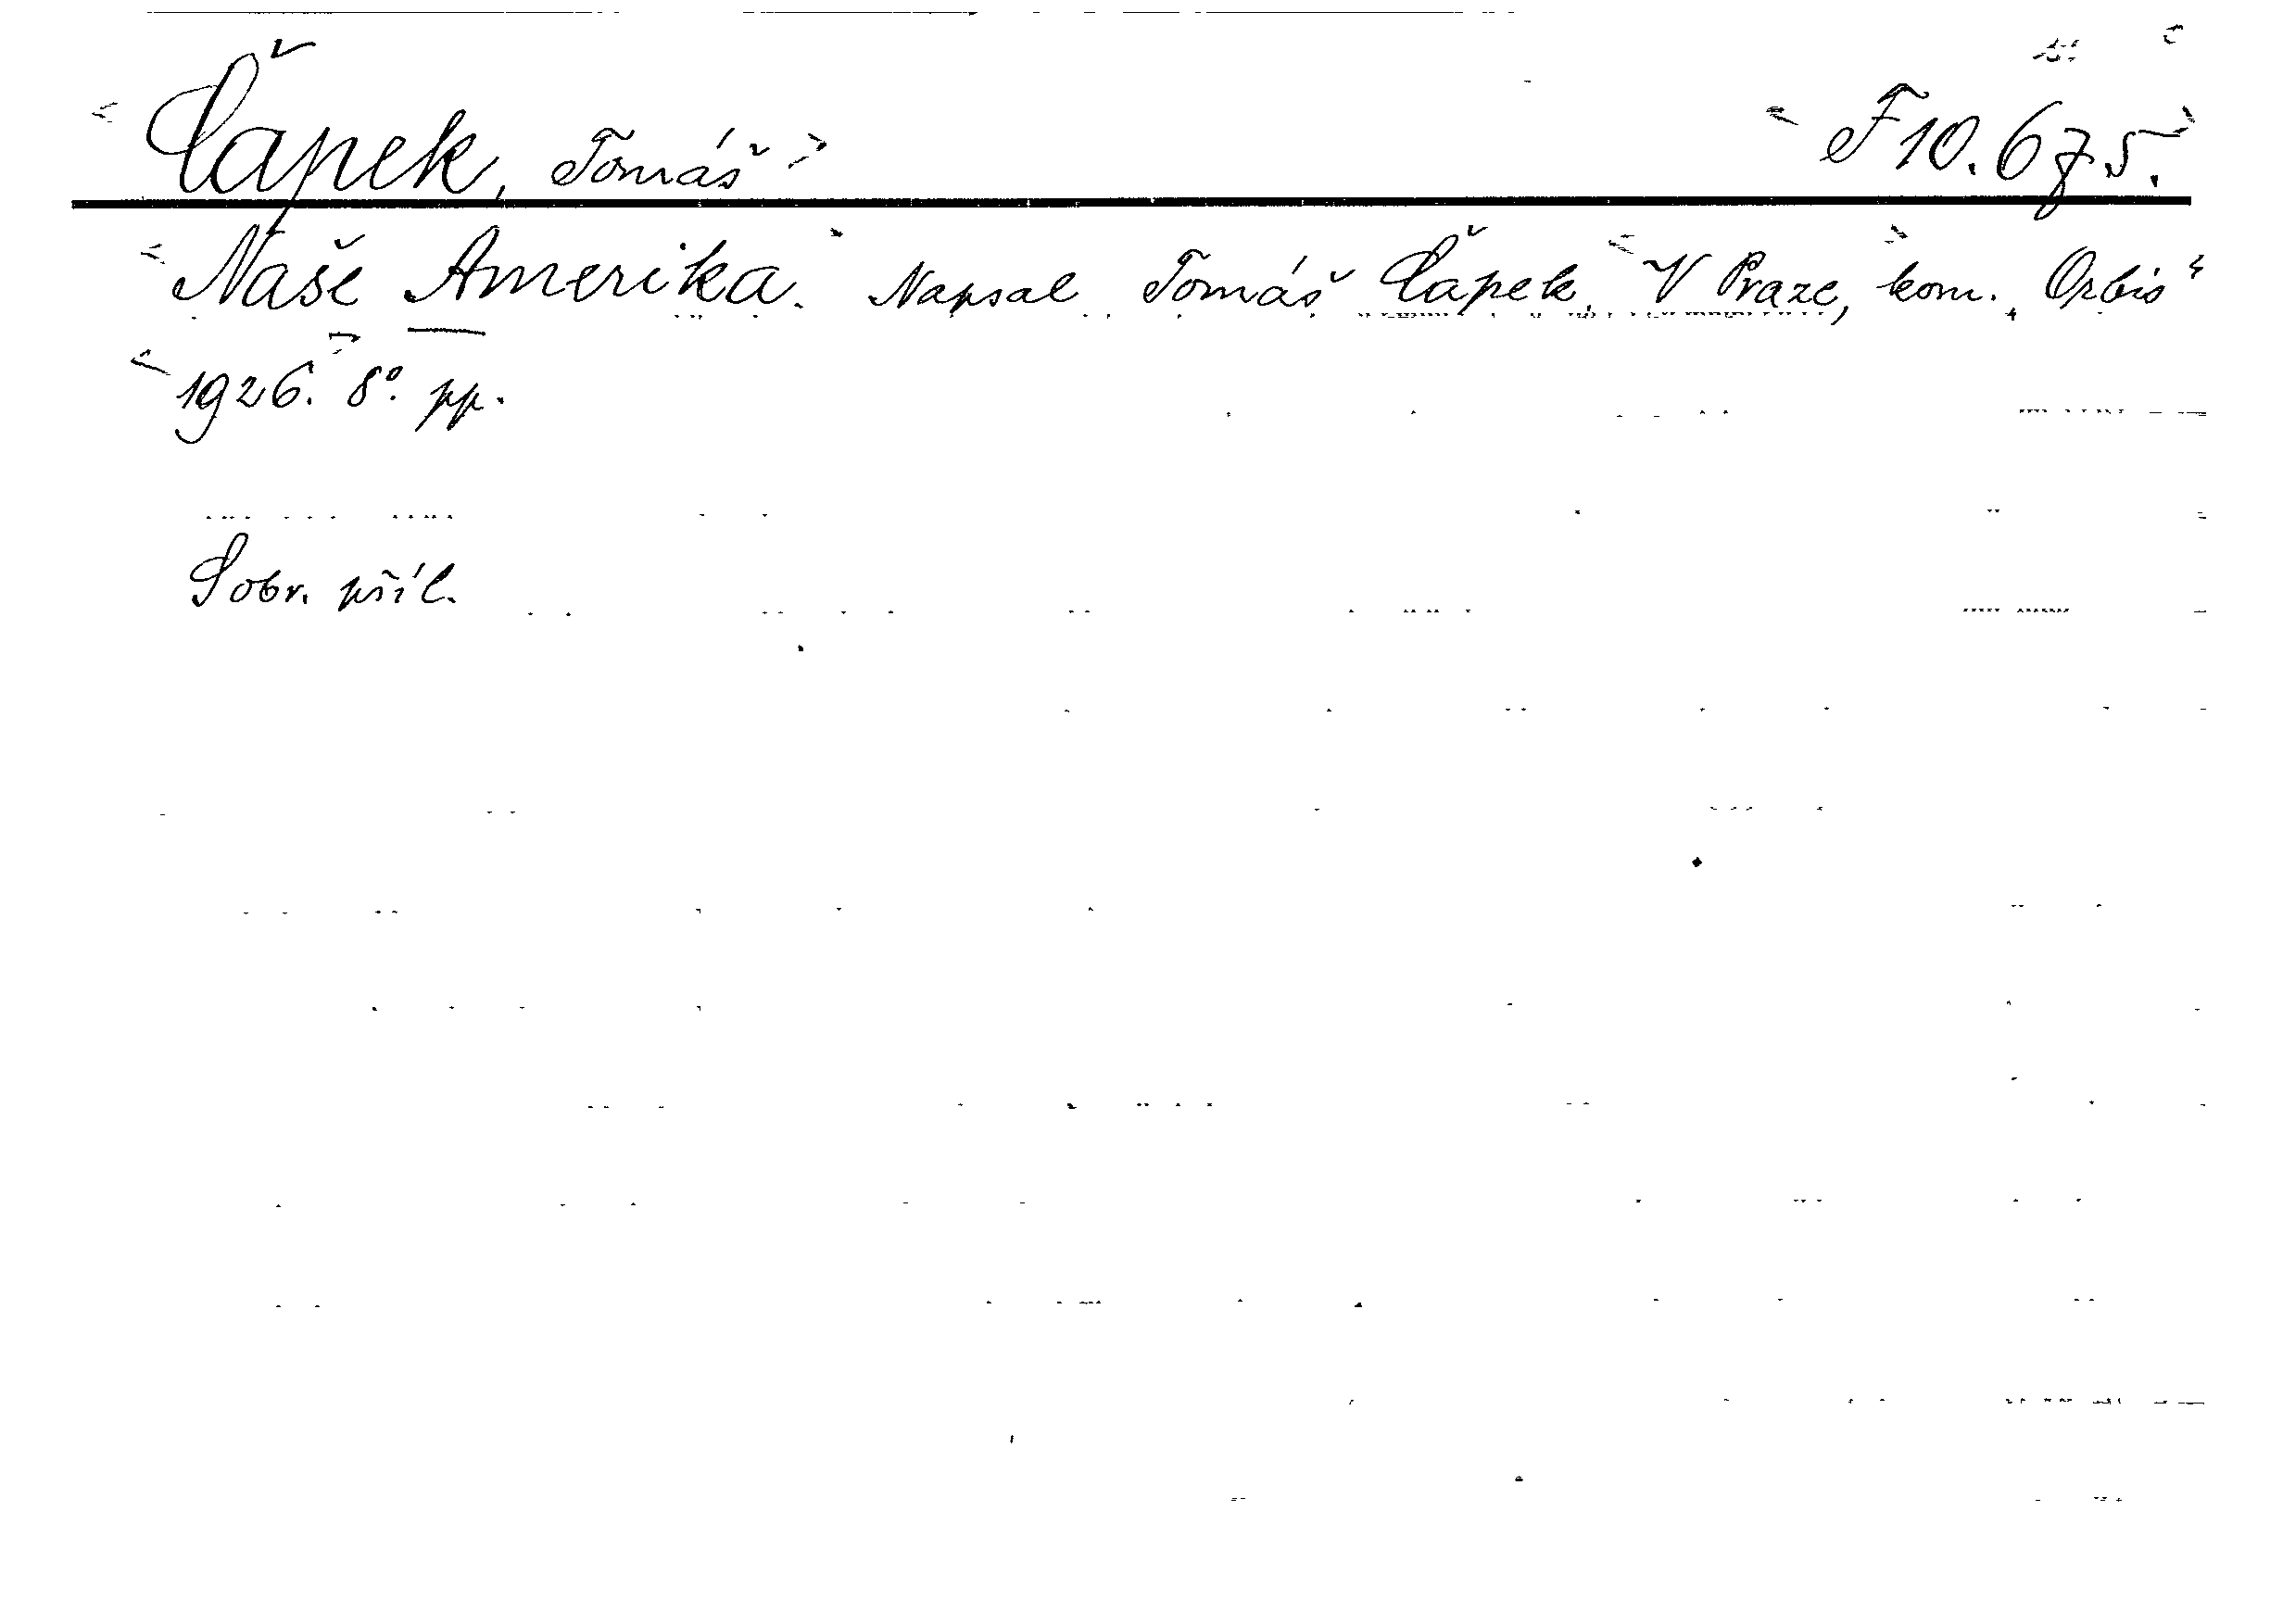 Čapek, Tomáš F 10.675.
Naše Amerika. Napsal Tomáš Čapek. V Praze, kom. „Orbis“
1926. 8°. pp.
S obr. příl.